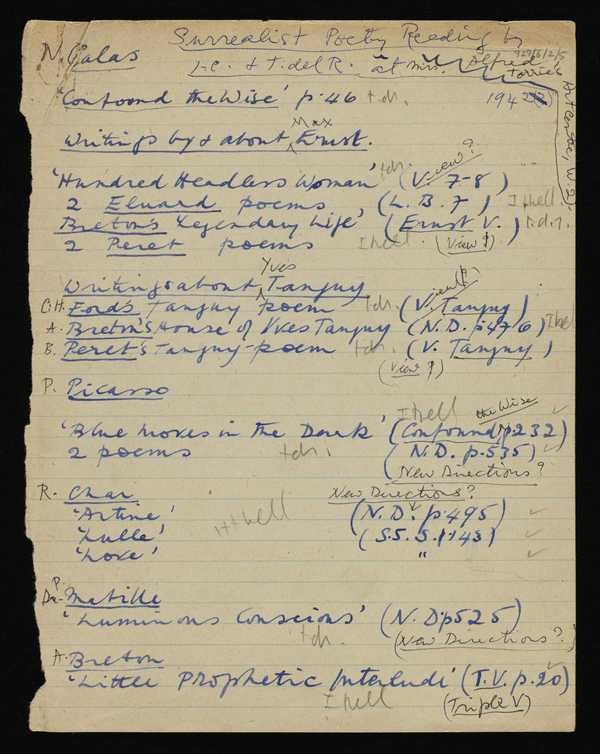 Surrealist Poetry Reading by
929/6/2/5
N. Calas
I.C. & T. del R. at Mrs. Alfred
Torrie's
'Confound the Wise' p. 46 tdr. 1942
Writings by & about Max Ernst.
'Hundred Headless Woman' tdr. (View? V. 7-8)
2 Eluard poems (L.B. 7) Ithell.
Breton's 'Legendary Life' (Ernst V.) t.d.r.
2 Peret poems Ithell. (View?)
Writings about Yves Tanguy
C.H. Ford's Tanguy poem tdr. (View? V. Tanguy)
A. Breton's House of Yves Tanguy (N.D. p 476) Ithell
B. Peret's Tanguy-poem tdr. (V. Tanguy)
(View?)
P. Picasso
Ithell the Wise
'Blue moves in the Dark' (Confound p232)
2 poems tdr. (N.D. p. 535)
(New Directions?
R. Char New Directions?
'Artine' Ithell (N.D. p. 495)
'Lulle' (S.S. 5. p 43)
'Love' "
P. Mabille
'Luminous Conscious' (N.D. p525)
tdr. (New Directions?)
A. Breton
'Little Prophetic Interlude' (T.V. p. 20)
Ithell (Triple V)